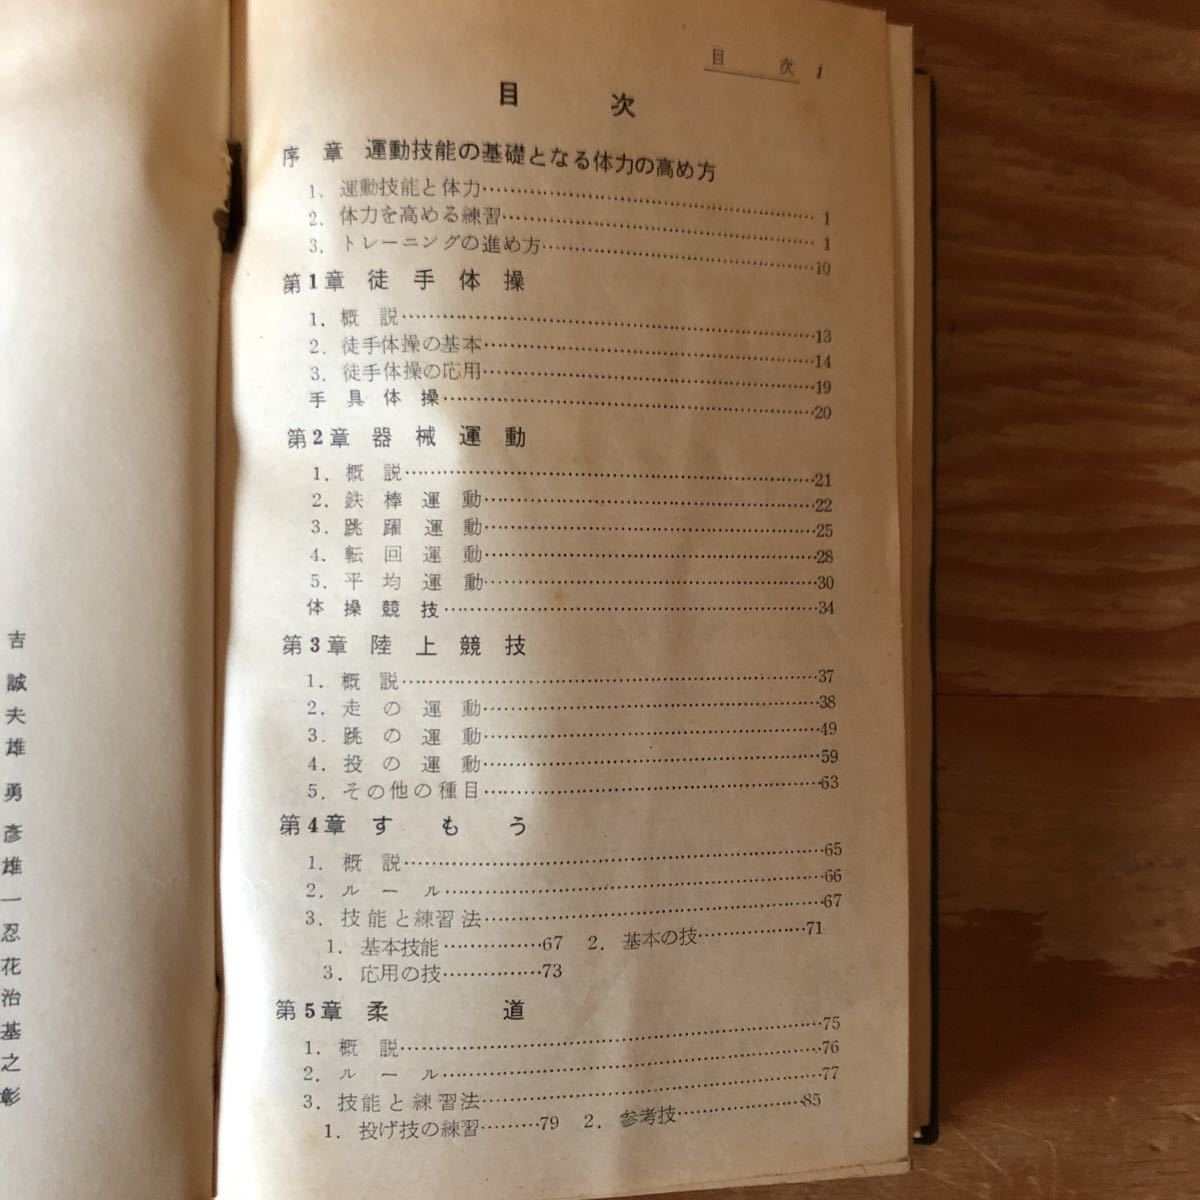 目次 1
目次
序章 運動技能の基礎となる体力の高め方
1. 運動技能と体力……1
2. 体力を高める練習……1
3. トレーニングの進め方……10
第1章 徒手体操
1. 概説……13
2. 徒手体操の基本……14
3. 徒手体操の応用……19
手具体操……20
第2章 器械運動
1. 概説……21
2. 鉄棒運動……22
3. 跳躍運動……25
4. 転回運動……28
5. 平均運動……30
体操競技……34
第3章 陸上競技
1. 概説……37
2. 走の運動……38
3. 跳の運動……49
4. 投の運動……59
5. その他の種目……63
第4章 すもう
1. 概説……65
2. ルール……66
3. 技能と練習法……67
1. 基本技能……67 2. 基本の技……71
3. 応用の技……73
第5章 柔道
1. 概説……75
2. ルール……76
3. 技能と練習法……77
1. 投げ技の練習……79 2. 参考技……85
吉
誠
夫
雄
勇
彦
雄
一
忍
花
治
基
之
彰